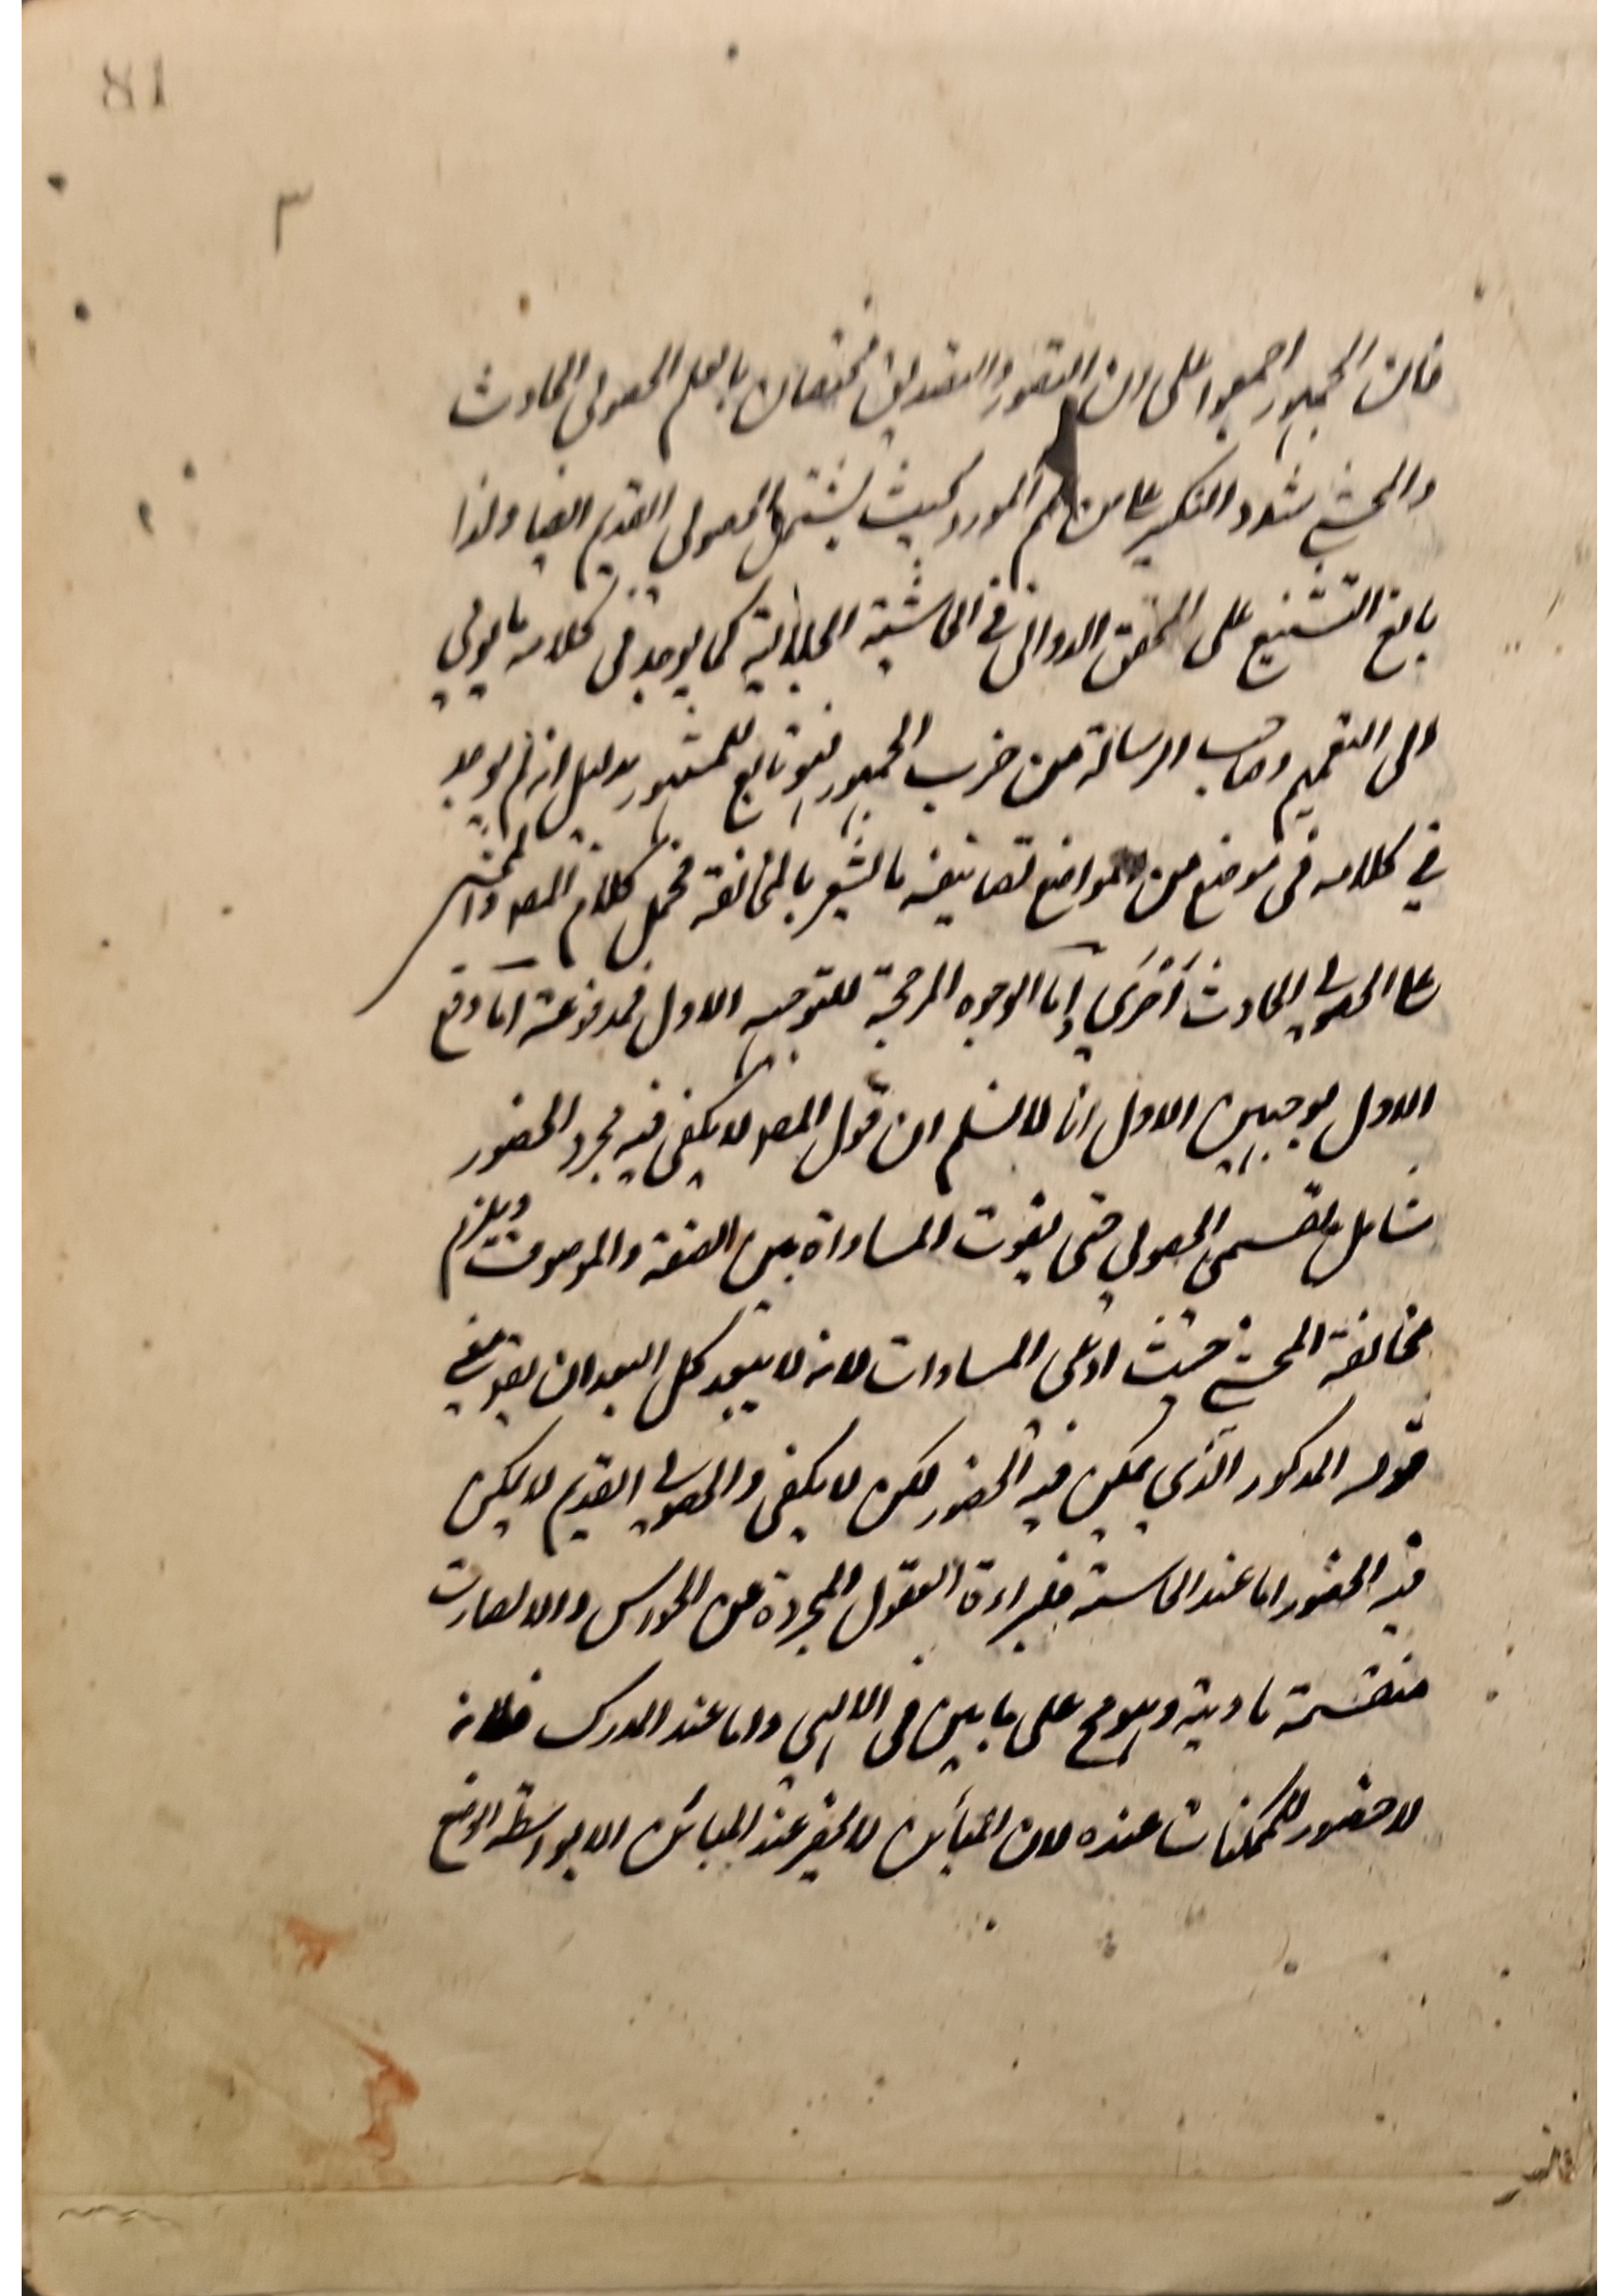 81
٣
فان الجمهور اجمعوا على ان التصور والتصديق مختصان بالعلم الحصولي الحادث
والمحشي شدد النكير على من عمم المورد بحيث يشتمل الحصولي القديم ايضا ولذا
بالغ التشنيع على المحقق الدواني في الحاشية الجلالية كما يوجد في كلامه ما يومي
الى التعميم وصاحب الرسالة من حزب الجمهور فهو تابع للمشهور بدليل انه لم يوجد
في كلامه في موضع من المواضع تصانيفه ما يشعر بالمخالفة فحمل كلام المصـ والمحشي
على الحصولي الحادث أحرى واما الوجوه المرجحة للتوجيه الاول فمدفوعة اما دفع
الاول بوجهين الاول انا لا نسلم ان قول المصـ لا يكفي فيه مجرد الحضور
شامل لقسمي الحصولي حتى يفوت المساواة بين الصفة والموصوف ويلزم
مخالفة المحشي حيث ادعى المساوات لانه لا يبعد كل البعد ان يقـ معنى
قوله المذكور الذي يمكن فيه الحضور لكن لا يكفي والحصولي القديم لا يمكن
فيه الحضور اما عند الحاسة فلبراءة العقول المجردة عن الحواس والا لصارت
منقسمة مادية وهو مح على ما بين في الالهي واما عند المدرك فلانه
لا حضور للممكنات عنده لان المبائن لا يحضر عند المبائن الا بواسطة الوضع